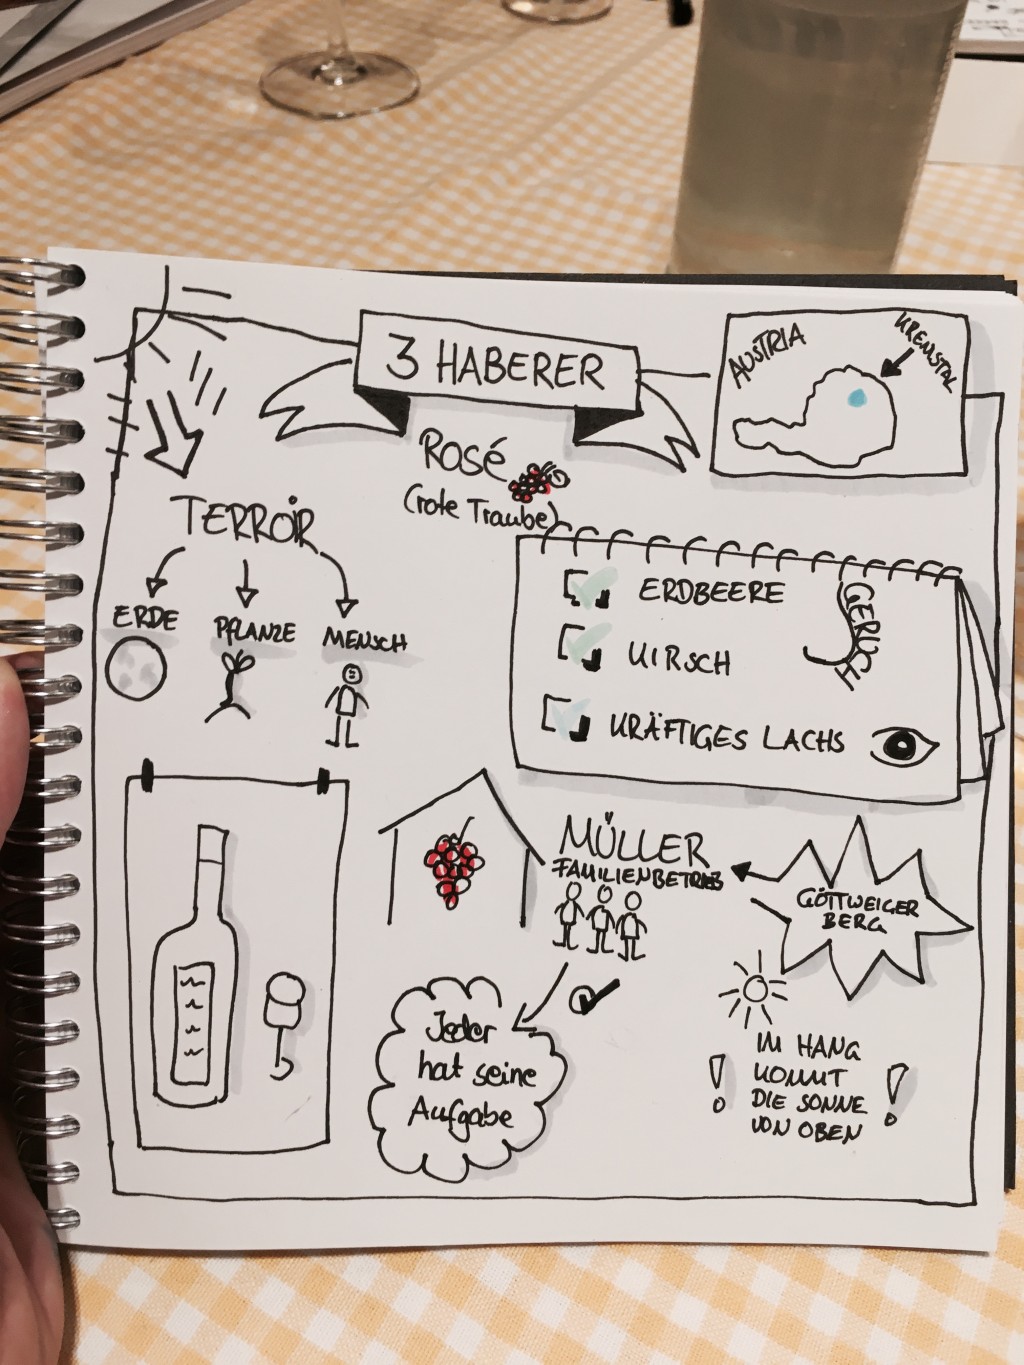 3 HABERER
AUSTRIA
KREMSTAL
ROSÉ
(rote Traube)
TERROIR
ERDE
PFLANZE
MENSCH
ERDBEERE
KIRSCH
KRÄFTIGES LACHS
GERUCH
MÜLLER
FAMILIENBETRIEB
GÖTTWEIGER
BERG
Jeder
hat seine
Aufgabe
IM HANG
KOMMT
DIE SONNE
VON OBEN
! !